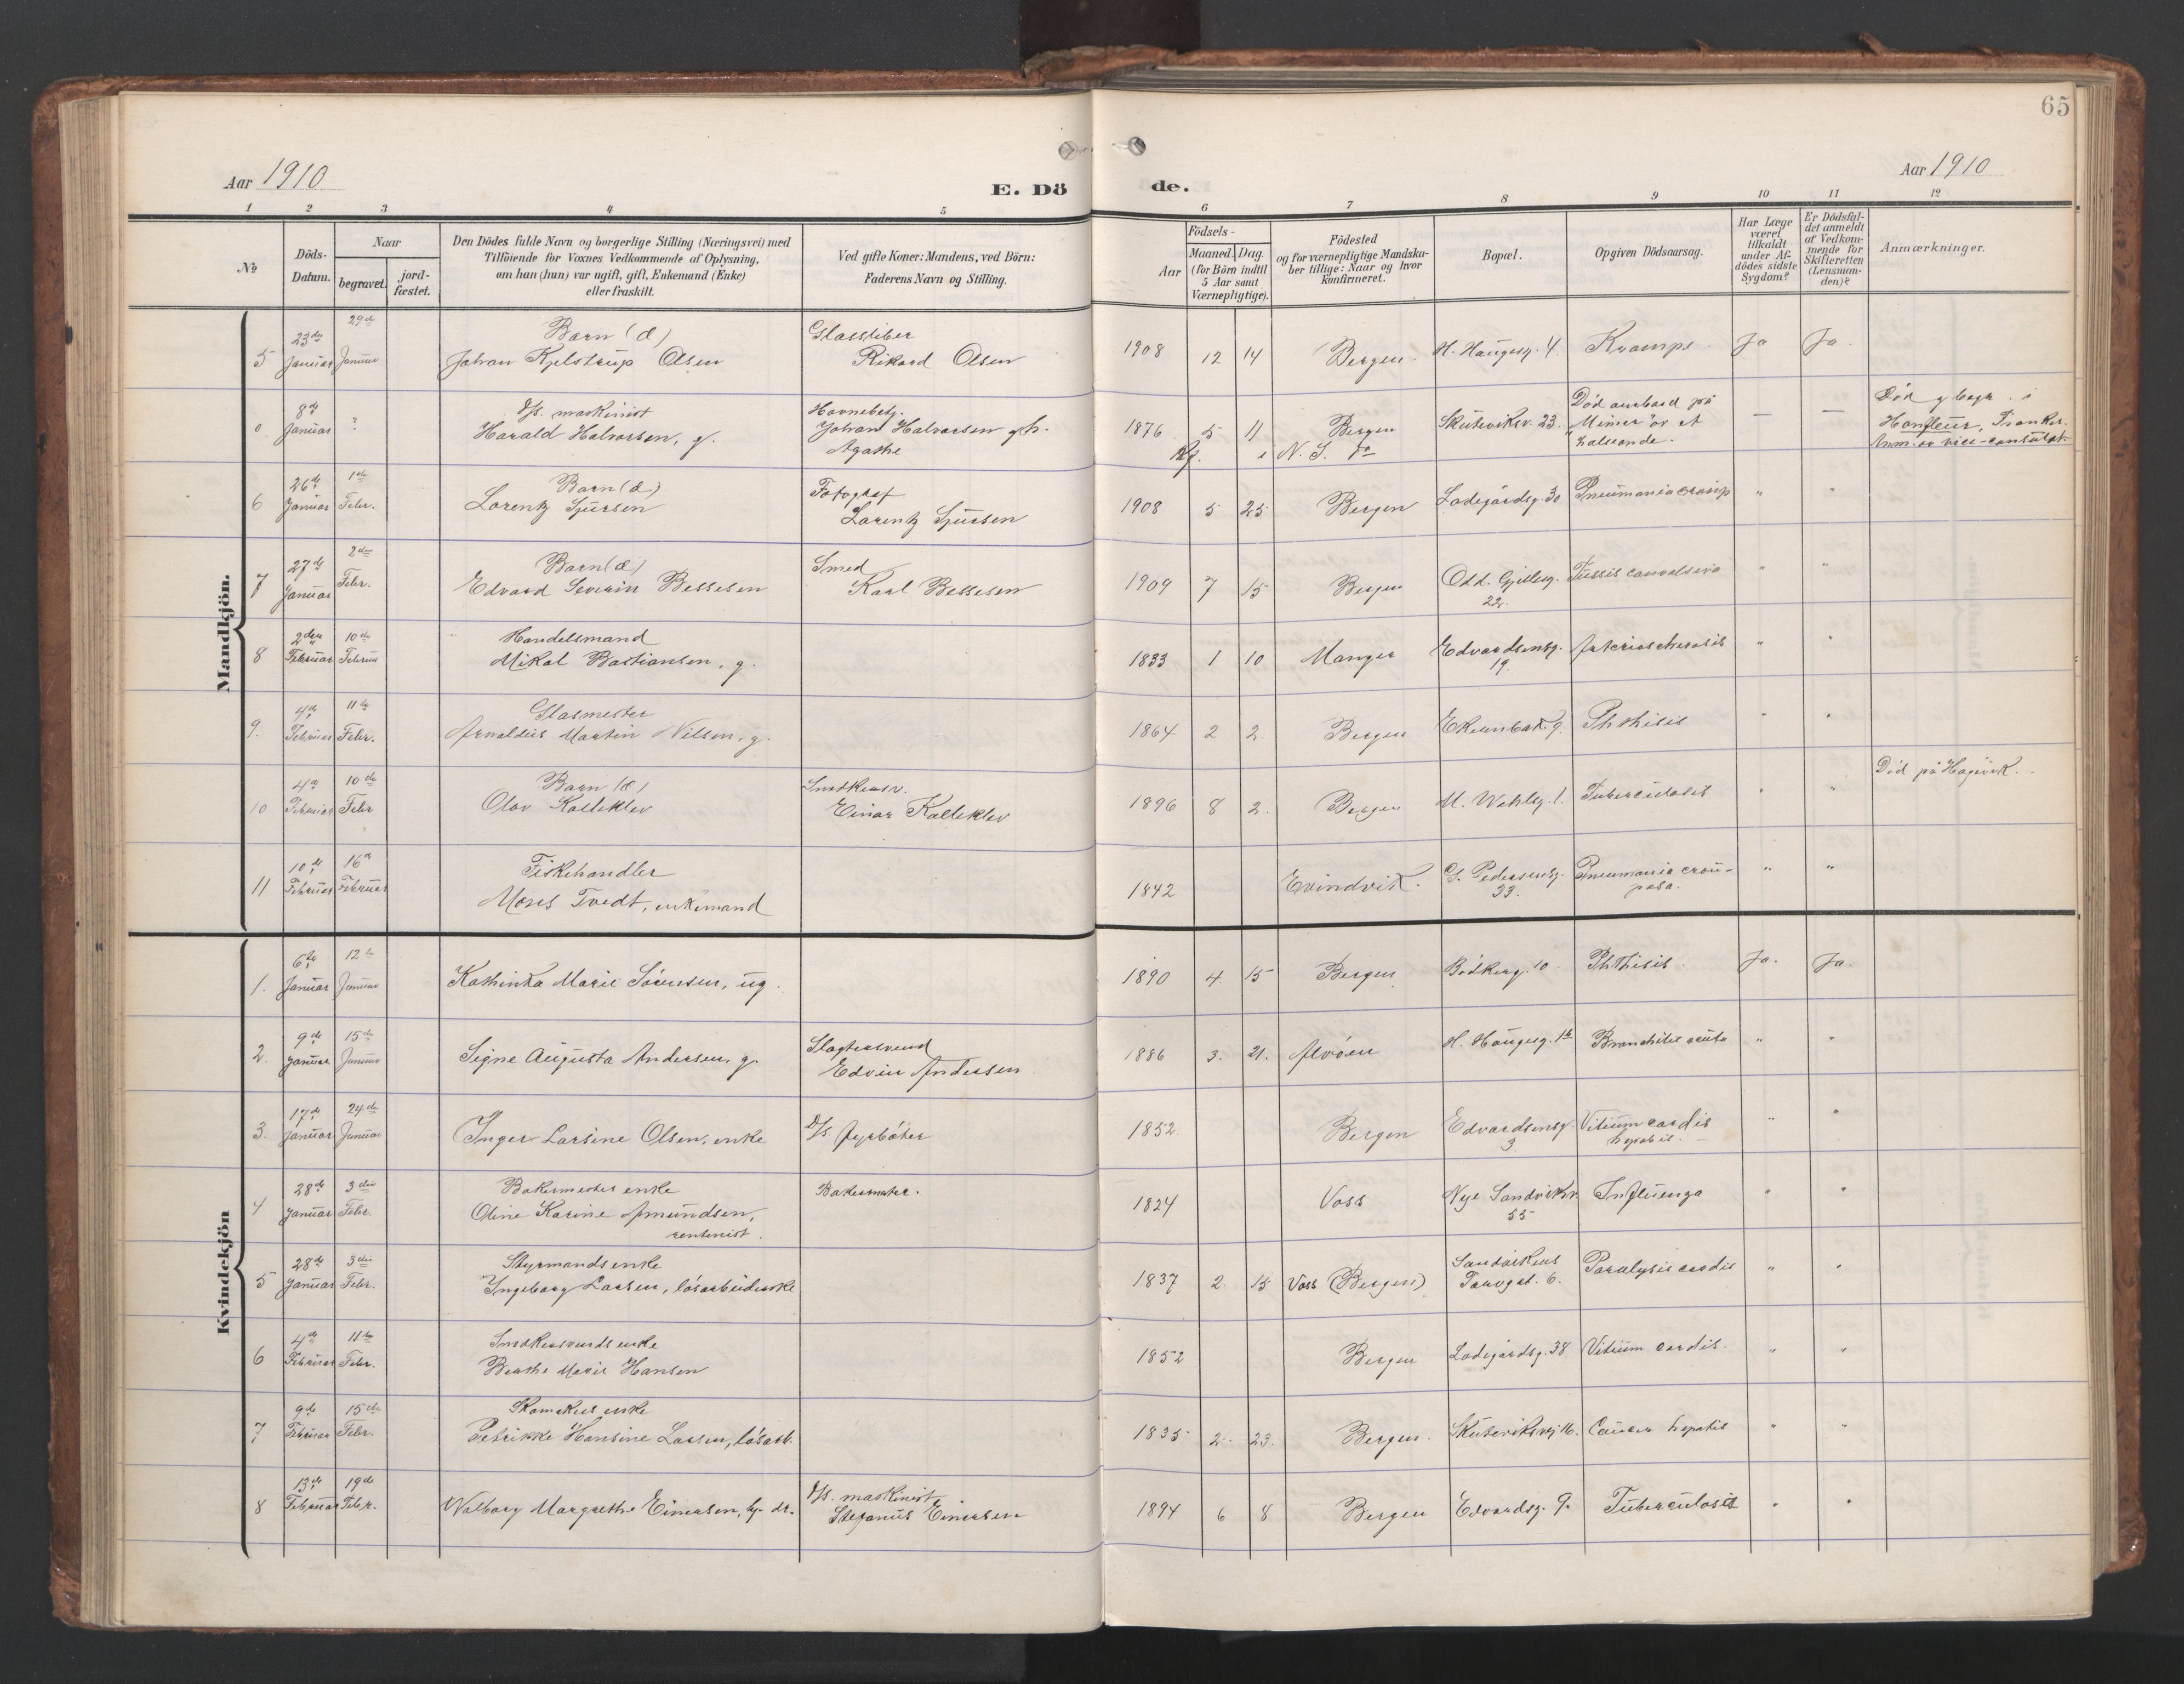 65
Aar 1910
E. Dö
de.
Aar 1910
1 2 3 4 5 6 7 8 9 10 11 12
No
Döds-
Datum.
Naar
begravet.
jord-
fæstet.
Den Dödes fulde Navn og borgerlige Stilling (Næringsvei) med
Tilföiende for Voxnes Vedkommende af Oplysning,
om han (hun) var ugift, gift, Enkemand (Enke)
eller fraskilt.
Ved gifte Koner: Mandens, ved Börn:
Faderens Navn og Stilling.
Födsels-
Aar
Maaned. Dag.
(for Börn indtil
5 Aar samt
Værnepligtige).
Födested
og for værnepligtige Mandska-
ber tillige: Naar og hvor
konfirmeret.
Bopæl.
Opgiven Dödsaarsag.
Har Læge
været
tilkaldt
under Af-
dödes sidste
Sygdom?
Er Dödsfal-
det anmeldt
af Vedkom-
mende for
Skifteretten
(Lensman-
den)?
Anmærkninger.
Mandkjön.
5 23de Januar 29de Januar
Barn (æ)
Johan Kjelstrup Olsen
Glassliber
Rikard Olsen
1908 12 14 Bergen. H. Haugesg. 4. Krampe. Ja Ja.
0 8de Januar ?
D/s. maskinist
Harald Halvorsen, g.
Havnebetj.
Johan Halvorsen og h.
Agathe
1876 5 11 Bergen
i N. S.
Skuteviksv. 23.
Död ombord på
"Mimer" av et
halsonde.
— —
Död og begr. i
Honfleur, Frankr.
Anm. av vice-consulat
6 26de Januar 1ste Febr.
Barn (æ)
Lorentz Sjursen
Fotograf
Lorentz Sjursen
1908 5 25 Bergen Ladegårdsg. 30 Pneumonia croup " "
7 27de Januar 2den Febr.
Barn (æ)
Edvard Severin Bessesen
Smed
Karl Bessesen
1909 7 15 Bergen Odd. Gjellesg.
22.
Tussis convulsiva " "
8 2den Februar 10de Februar
Handelsmand
Mikal Bastiansen, g.
1833 1 10 Manger Edvardsensg.
19.
Arteriosclerosis " "
9. 4de Februar 11te Febr.
Glasmester
Arnoldus Martin Nilsen, g.
1864 2 2 Bergen Ekrenbak. 9. Phthisis " "
10 4de Februar 10de Febr
Barn (æ)
Olav Kalleklev
Snedkersv.
Einar Kalleklev
1896 8 2. Bergen M. Wehlsg. 1. Tuberculosis " "
Död på Hagevik.
11 10de Februar 16de Februar
Fiskehandler
Moses Tvedt, enkemand
1842 Evindvik. G. Pedersensg.
33.
Pneumonia crou-
posa. " "
Kvindekjön
1. 6te Januar 12te Januar
Kathinka Marie Sörensen, ug.
1890 4 15 Bergen Bödkerg. 10. Phthisis. Ja. Ja.
2. 9de Januar 15de Januar
Signe Augusta Andersen, g.
Slagtersvend
Edvin Andersen
1886 3. 21. Alvöen H. Haugesg. 1b Bronchitis acuta " "
3. 17de Januar 24de Januar
Inger Larsine Olsen, enke
D/s. fyrböter
1852. Bergen Edvardsensg.
3
Vitium cordis " "
4 28de Januar 3die Febr.
Bakermester enke
Oline Karine Amundsen,
rentenist.
Bakermester.
1824 Voss Nye Sandviksv
55
Influenza " "
5 28de Januar 3die Febr.
Styrmands enke
Ingeborg Larsen, lösarbeiderske
1837 2. 15 Voss (Bergen) Sandvikens
Torvgt. 6.
Paralysis cordis " "
6 4de Februar 11te Febr.
Snedkersvends enke
Berthe Marie Hansen
1852 Bergen Ladegårdsg. 38. Vitium cordis. " "
7 9de Februar 15de Febr.
Skomakers enke
Petrikke Hansine Larsen, lösarb.
1835 2. 23. Bergen. Skuteviksvej 16. Cancer hepatis " "
8 13de Februar 19de Febr.
Walborg Margrethe Einersen, tj. dr.
D/s. maskinist
Stefanus Einersen
1894 6 8 Bergen Edvardsg. 9a Tuberculosis " "